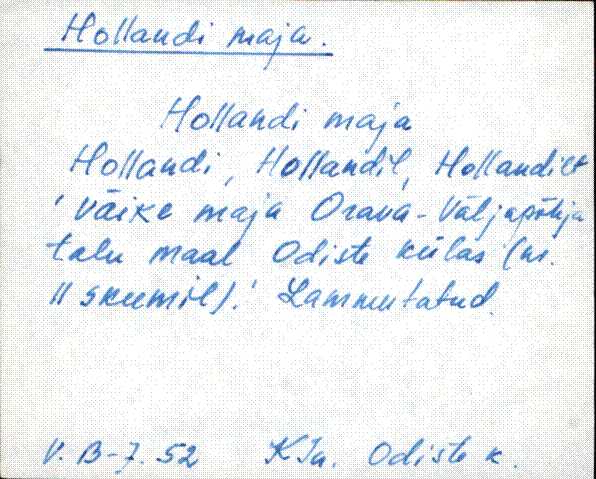 Hollandi maja.
Hollandi maja
Hollandi, Hollandil, Hollandilt
'Väike maja Orava-Väljapõhja
talu maal Odiste külas (nr.
11 skeemil).' Lammutatud.
V. B-7. 52 KJn. Odiste k.